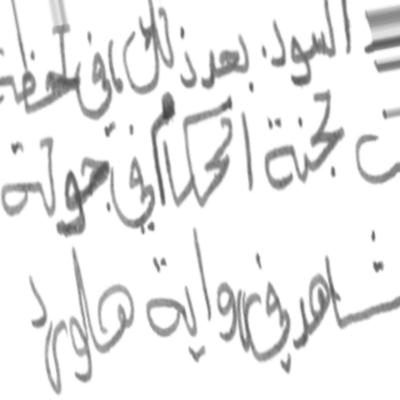 السود. بعد ذلك، في لحظة
ت لجنة الحكام في جولة
شاهد في رواية هاورد